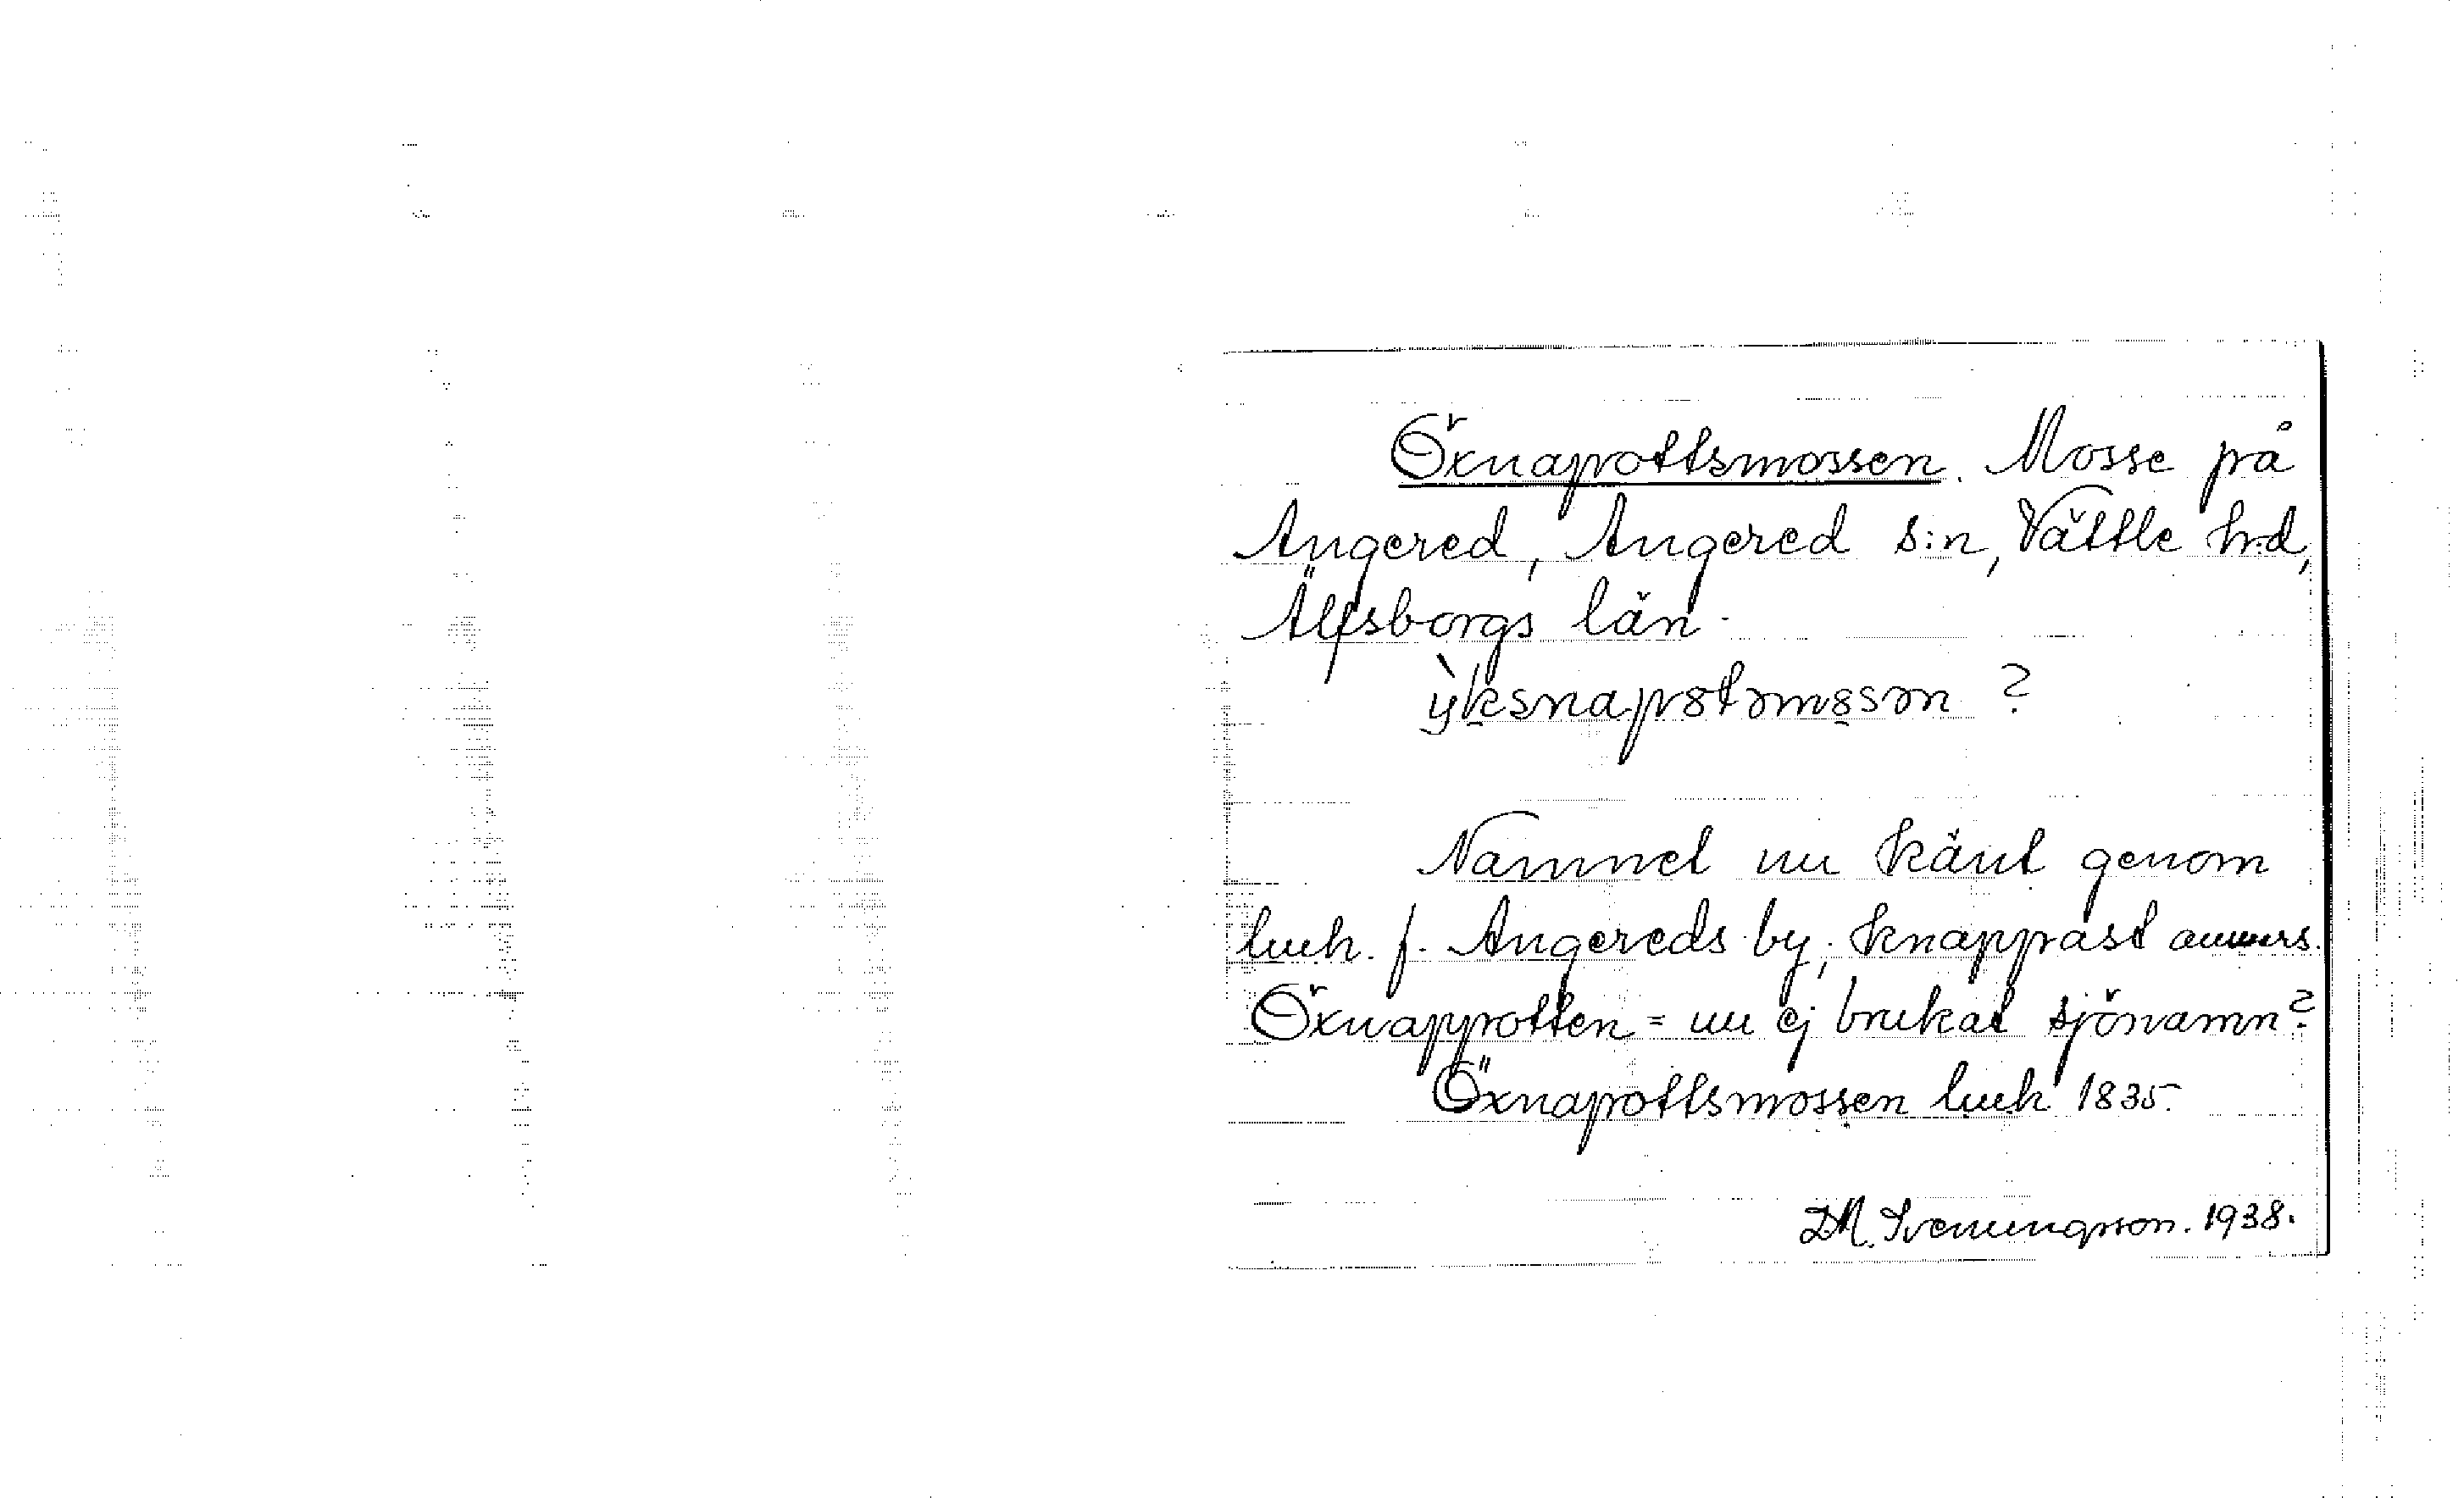 Öxnapottsmossen. Mosse på
Angered, Angered s:n, Vättle hd,
Älfsborgs län.
Namnet nu känt genom
luch. f. Angereds by; knappast annars.
Öxnappotten = nu ej brukat sjönamn?
Öxnapottsmossen luch 1835.
D.M. Svenungsson. 1938.